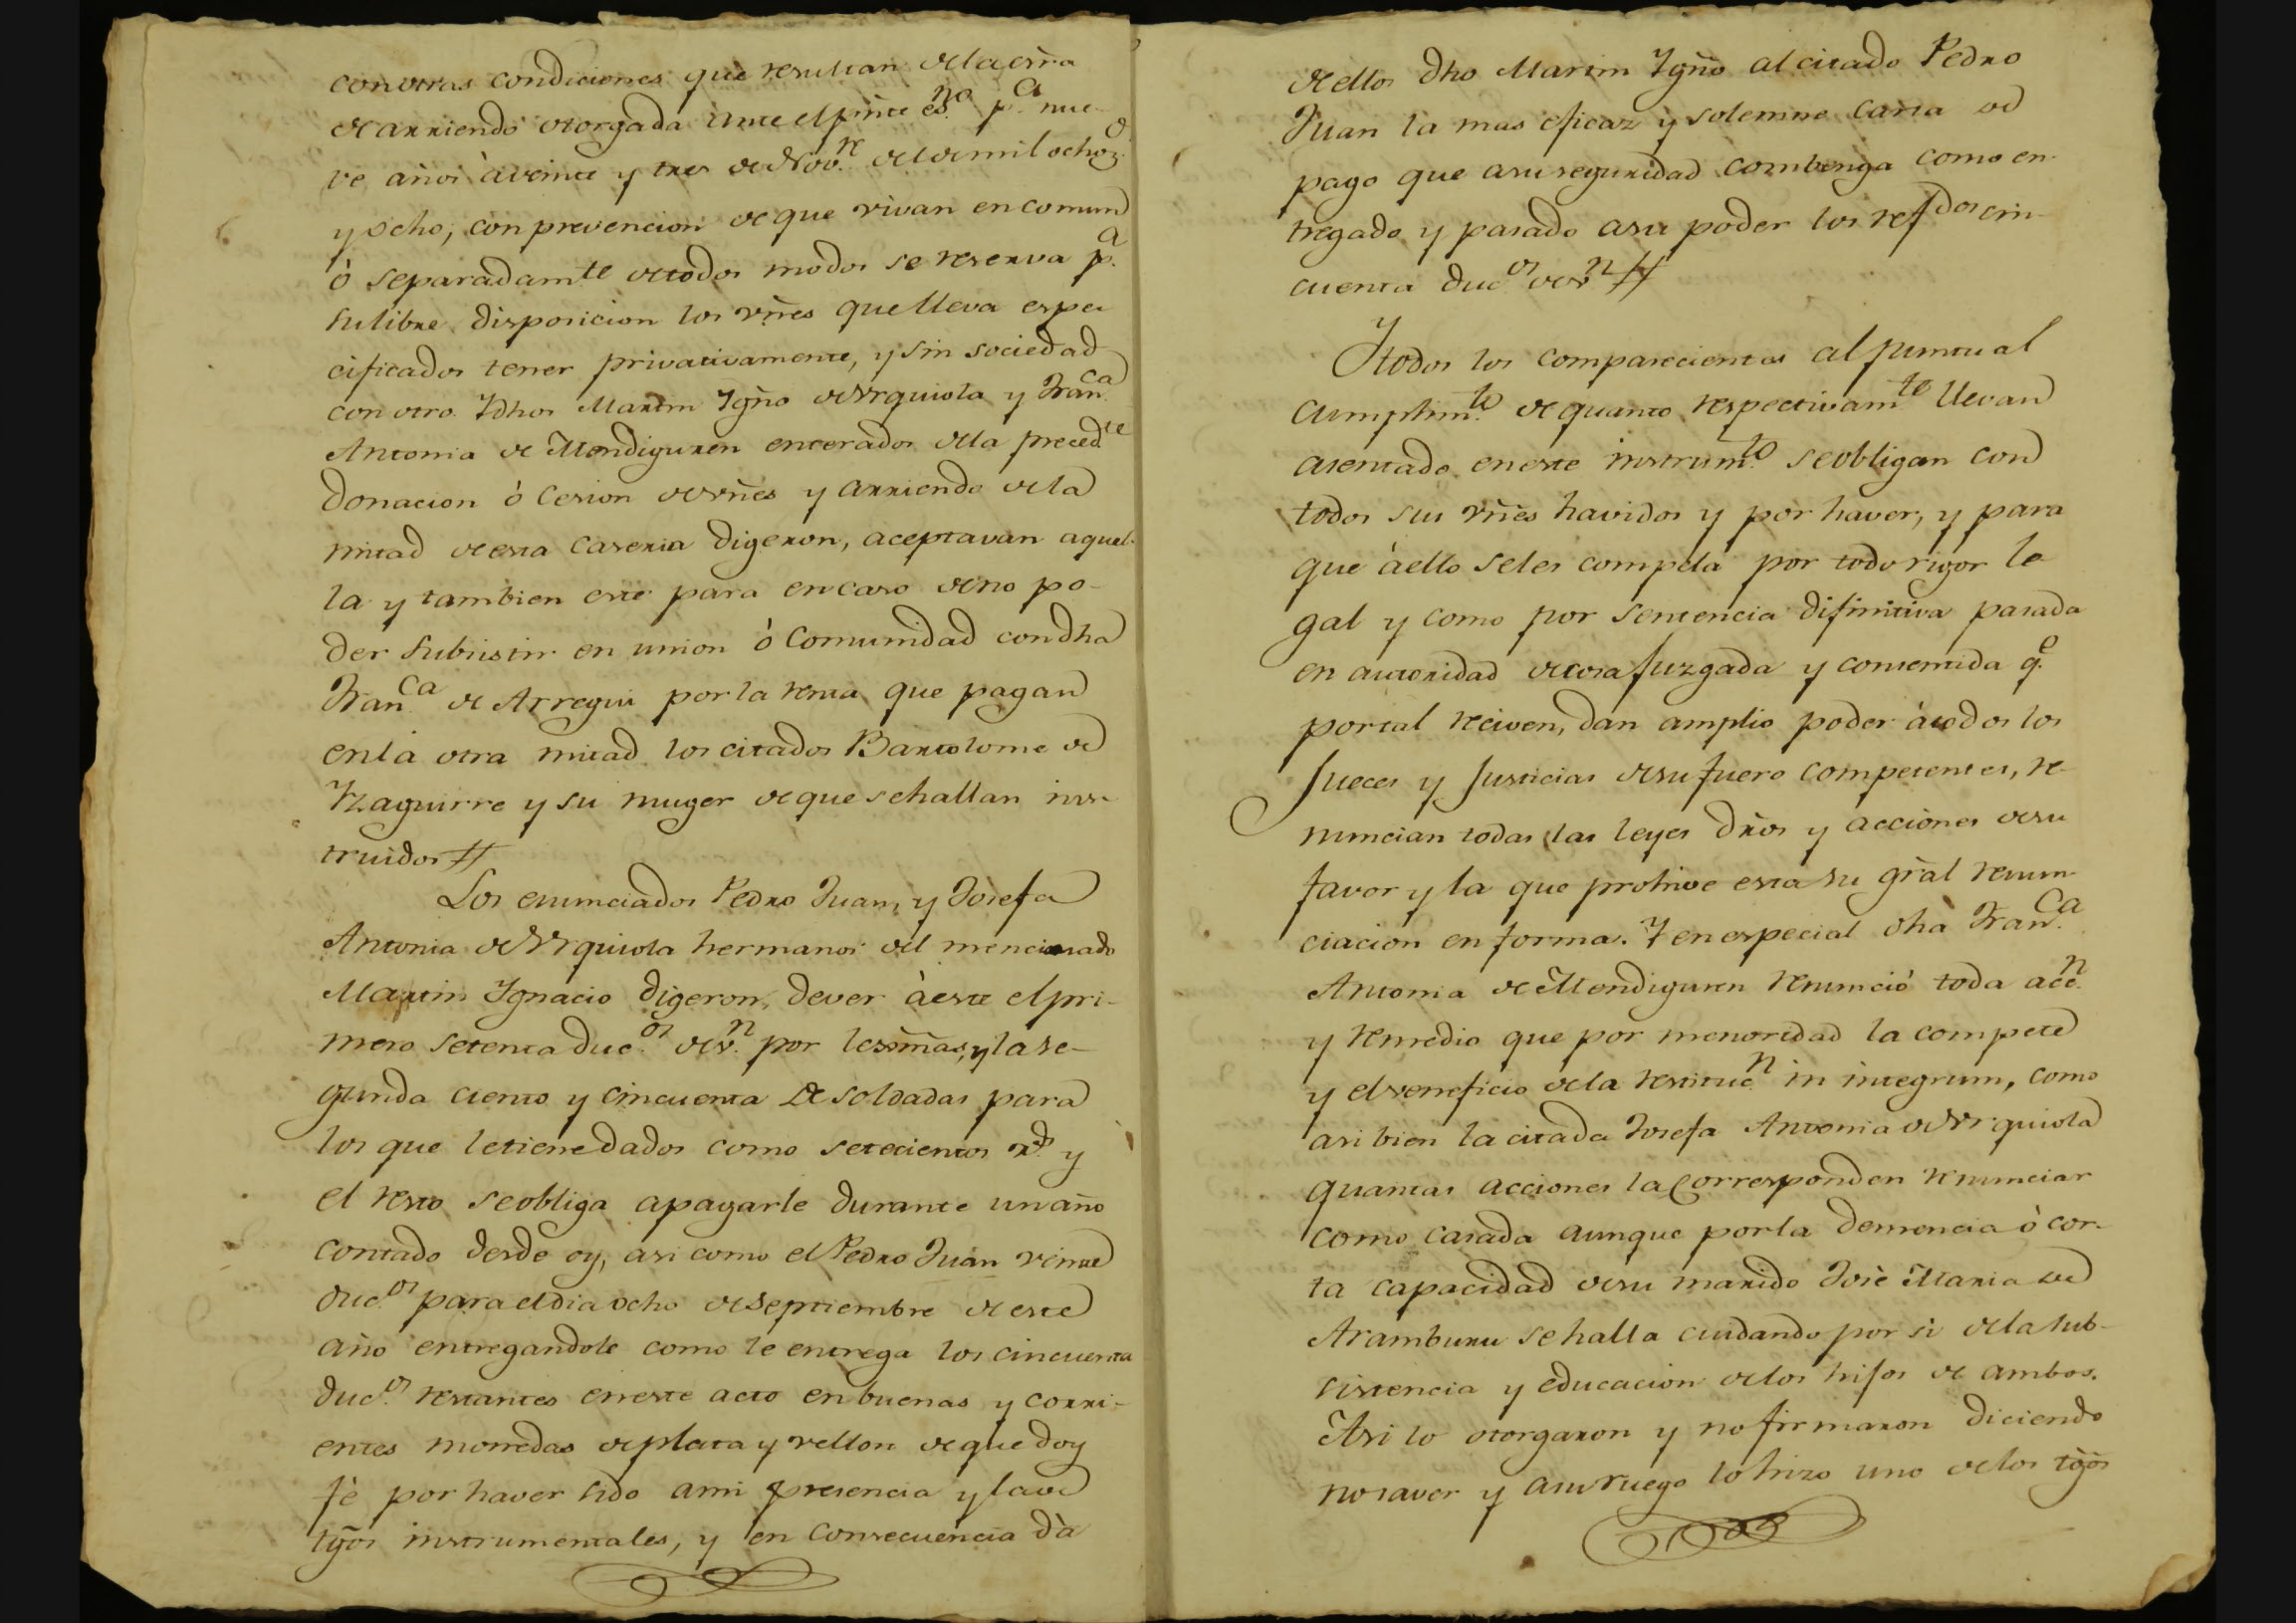 con otras condiciones que resultan de la esrra
de arriendo otorgada ante el pnte esno pa nue-
ve años à veinte y tres de Novre de mil ochos
y ocho, con prevencion de que vivan en comun
ò separadamte de todos modos se reserva pa
su libre disposicion los vnes que lleva espe
cificados tener privativamente, y sin sociedad
con otro. Y dhos Martin Ygno de Vrquiola y Franca
Antonia de Mendiguren enterados de la precedte
donacion ò cesion de vnes y arriendo de la
mitad de esta caseria digeron, aceptavan aquel-
la y tambien este para en caso de no po-
der subsistir en union ò comunidad con dha
Franca de Arregui por la renta que pagan
en la otra mitad los citados Bartolome de
Yzaguirre y su muger de que se hallan ins-
truidos #
Los enunciados Pedro Juan, y Josefa
Antonia de Vrquiola hermanos del mencionado
Martin Ygnacio digeron, dever à este el pri-
mero setenta ducos de vn por lesmas, y la se-
gunda ciento y cincuenta de soldadas para
los que le tiene dados como setecientos rs y
el resto se obliga a pagarle durante un año
contado desde oy, asi como el Pedro Juan veinte
ducos para el dia ocho de septiembre de este
año entregandole como le entrega los cincuenta
ducos restantes en este acto en buenas y corri-
entes monedas de plata y vellon de que doy
fè por haver sido a mi presencia y la de
tgos instrumentales, y en consecuencia dà
de ellos dho Martin Ygno al citado Pedro
Juan la mas eficaz y solemne carta de
pago que a su seguridad combenga como en-
tregado y pasado a su poder los refdos cin-
cuenta ducos de vn #
Y todos los comparecientes al puntual
cumplimto de quanto respectivamte llevan
asentado en este instrumto se obligan con
todos sus vnes havidos y por haver, y para
que à ello se les compela por todo rigor le
gal y como por sentencia difinitiva pasada
en autoridad de cosa juzgada y consentida qe
por tal reciven, dan amplio poder à todos los
Jueces y Justicias de su fuero competentes, re-
nuncian todas las leyes dros y acciones de su
favor y la que prohive esta su gral renun-
ciacion en forma. Y en especial dha Franca
Antonia de Mendiguren renunciò toda accn
y remedio que por menoridad la compete
y el veneficio de la restitucn in integrum, como
asi bien la citada Josefa Antonia de Vrquiola
quantas acciones la corresponden renunciar
como casada aunque por la demencia ò cor-
ta capacidad de su marido Josè Maria de
Aramburu se halla cuidando por si de la sub-
sistencia y educacion de los hijos de ambos.
Asi lo otorgaron y no firmaron diciendo
no saver y a su ruego lo hizo uno de los tgos